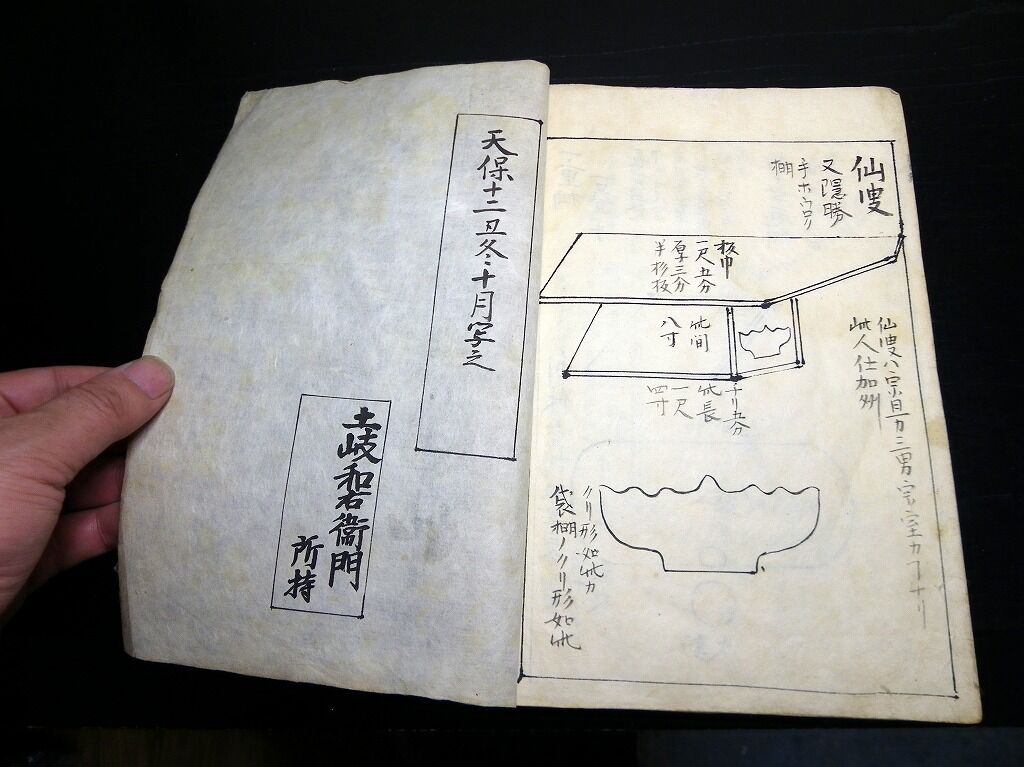 仙叟
又隠勝
棚
板巾
一尺五分
厚三分
半杉板
此間
八寸
チリ五分
此長
一尺
四寸
仙叟ハ宗旦カ三男宗室カコトナリ
此人仕加州
クリ形如此カ
袋棚ノクリ形如此
天保十二丑冬十月写之
土岐和右衛門
所持